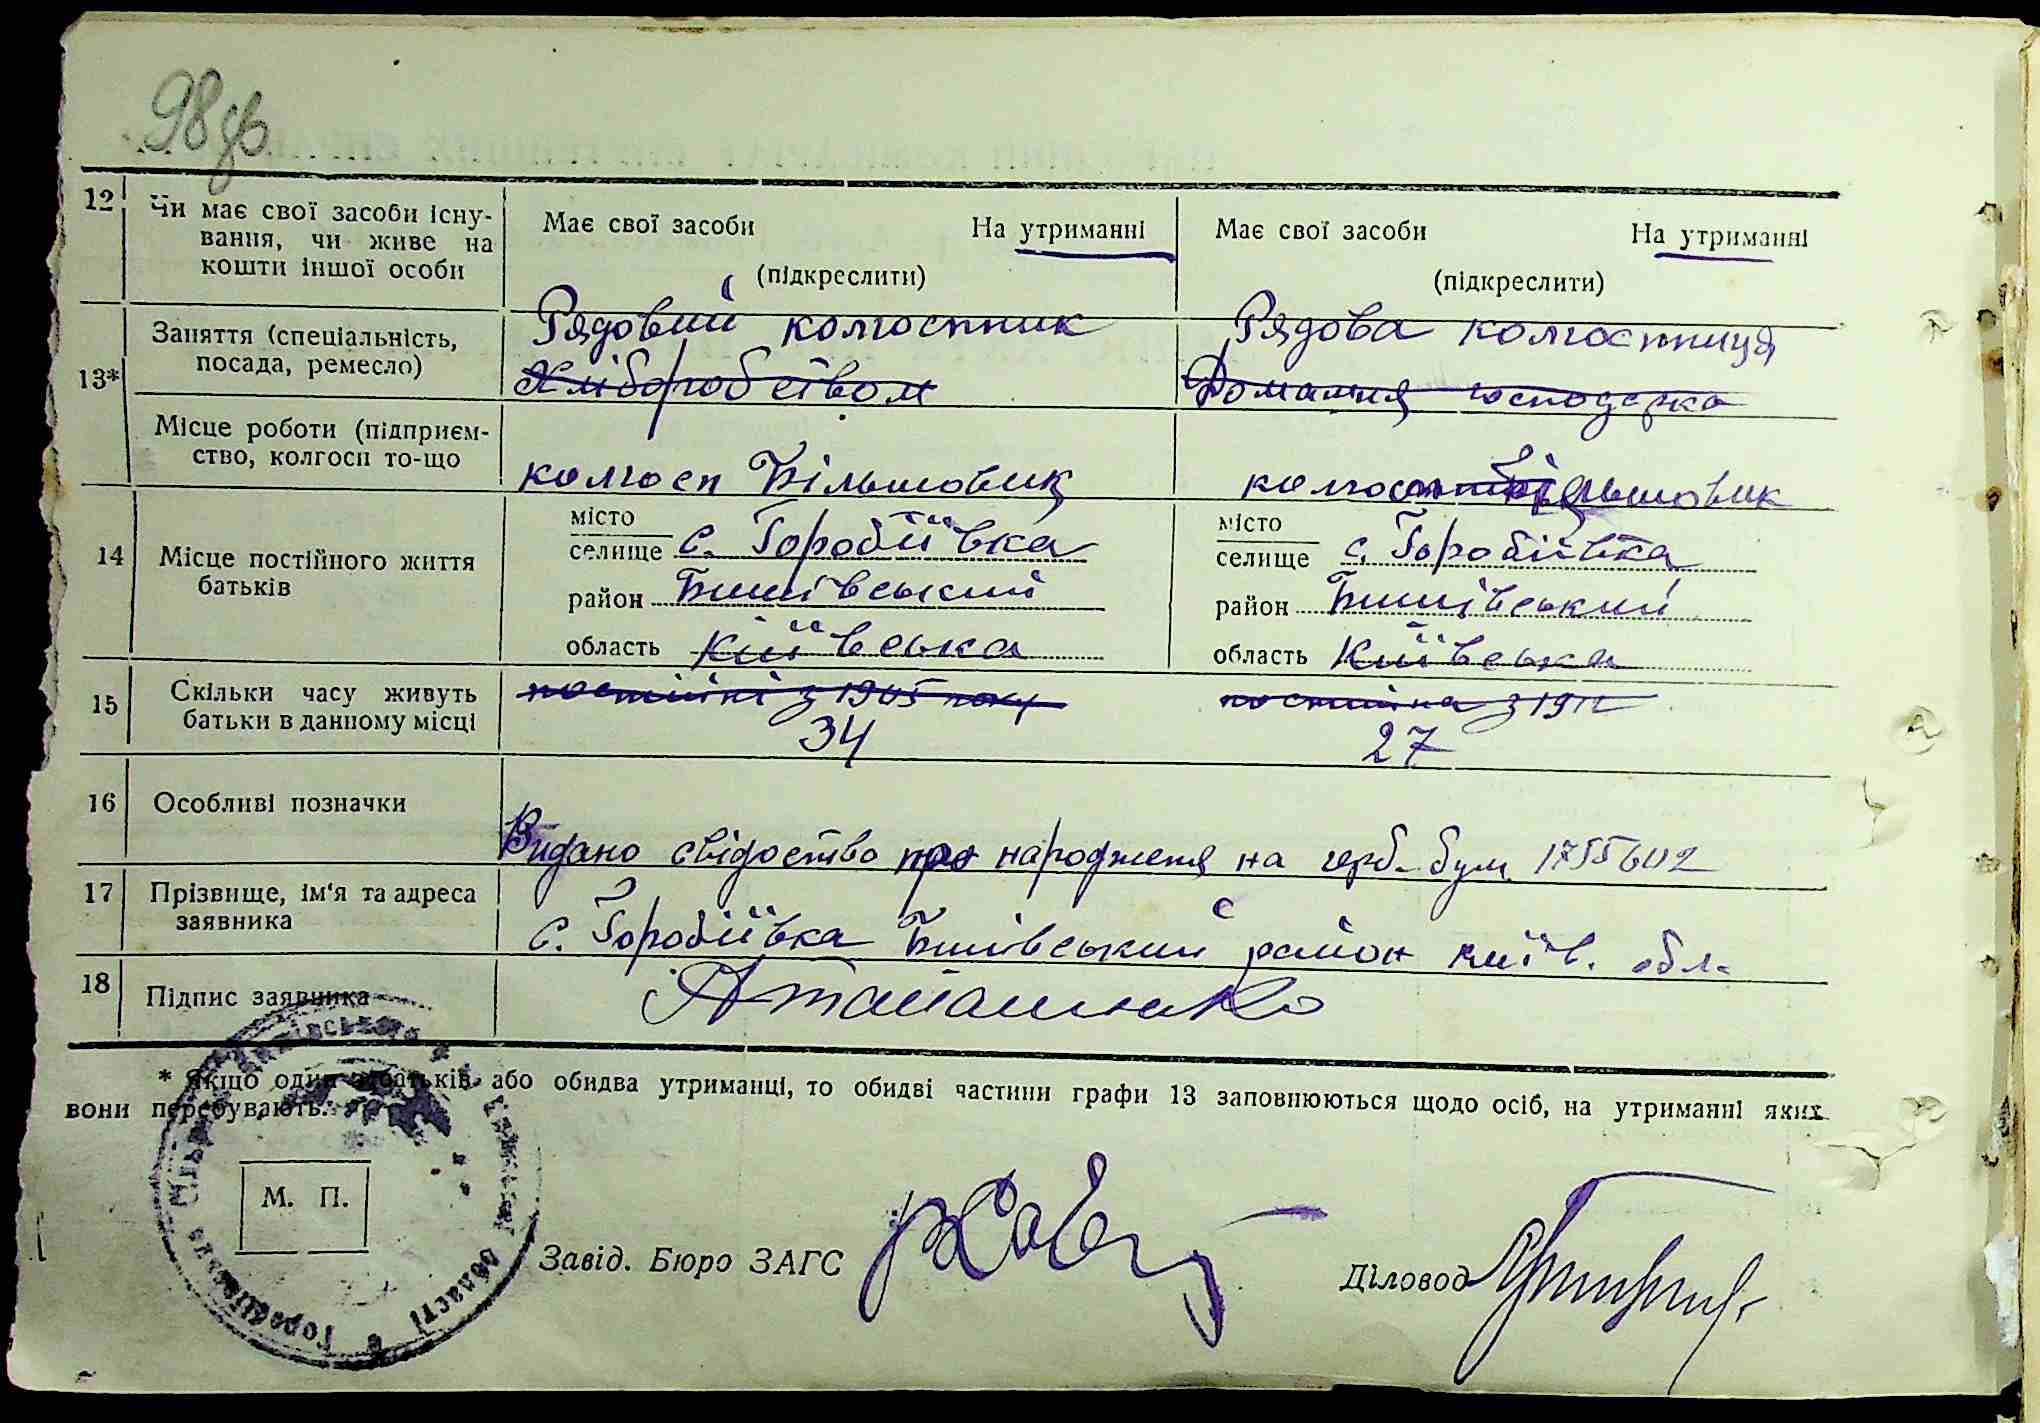 98 зв
12 Чи має свої засоби існу-
вання, чи живе на
кошти іншої особи
Має свої засоби На утриманні
(підкреслити)
Має свої засоби На утриманні
(підкреслити)
13*
Заняття (спеціальність,
посада, ремесло)
Рядовий колгоспник
Хліборобством
Рядова колгоспниця
Домашня господарка
Місце роботи (підприєм-
ство, колгосп то-що
колгосп Більшовик
колгосп Більшовик
14 Місце постійного життя
батьків
місто
селище с. Горобіївка
район Бишівський
область Київська
місто
селище с. Горобіївка
район Бишівський
область Київська
15 Скільки часу живуть
батьки в данному місці
постійні з 1905 року
34
постійна з 1911
27
16 Особливі позначки
Видано свідоство про народженя на герб. бум 1755602
17 Прізвище, ім'я та адреса
заявника
с. Горобіївка Бишівський район київ. обл.
18 Підпис заявника
* Якщо один з батьків або обидва утриманці, то обидві частини графи 13 заповнюються щодо осіб, на утриманні яких
вони перебувають.
М. П.
Завід. Бюро ЗАГС
Діловод